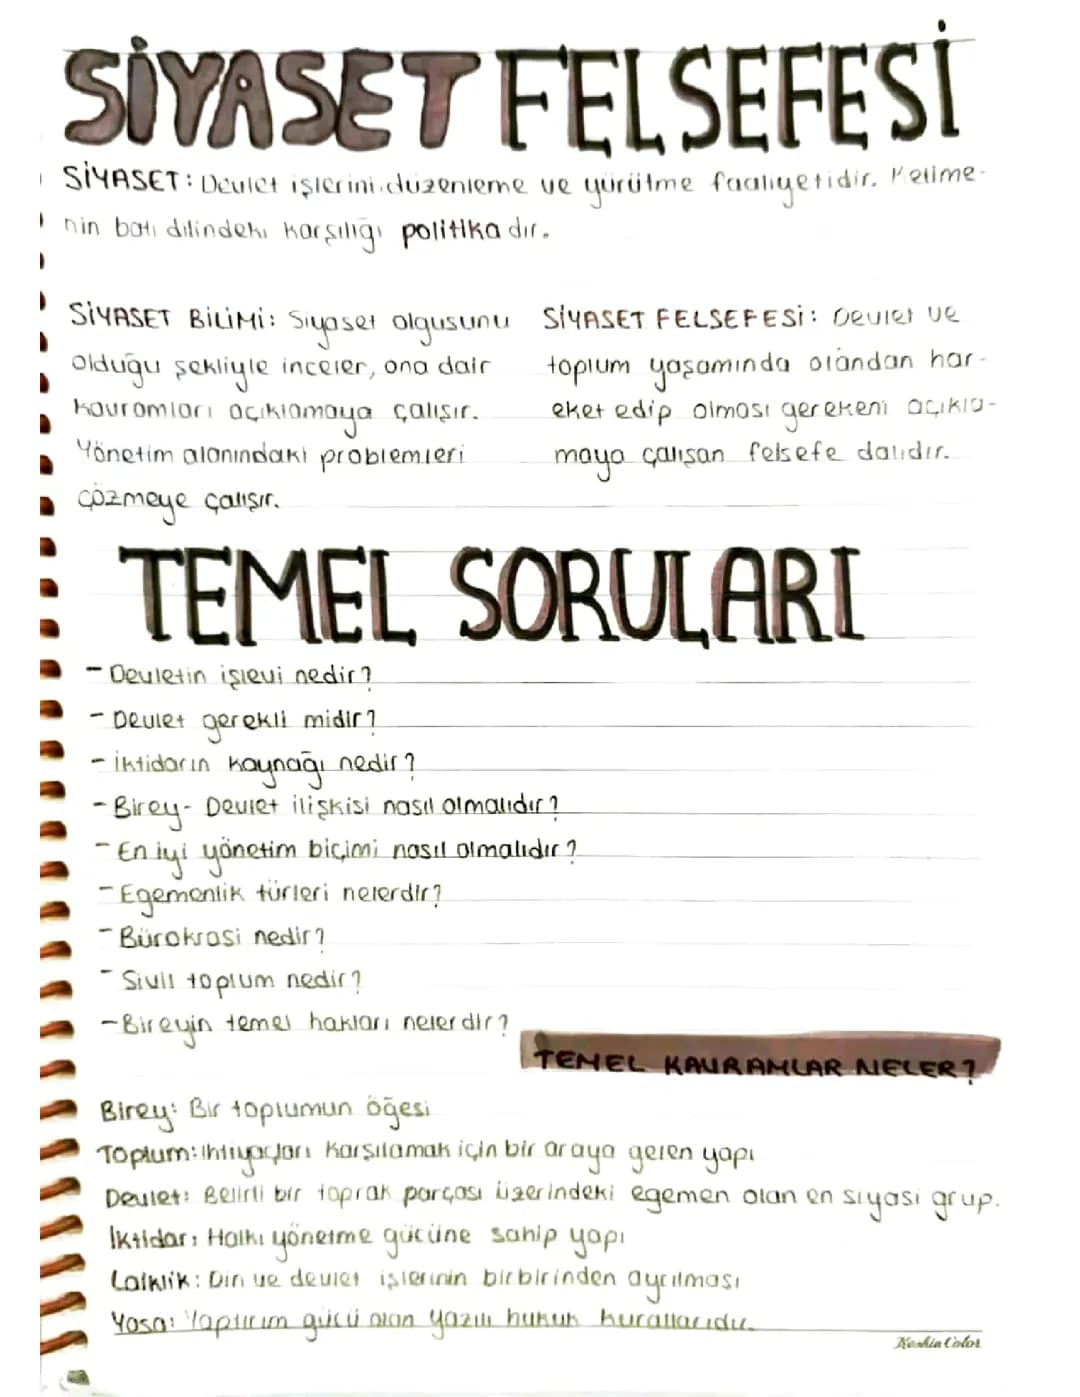 SİYASET FELSEFESİ
SİYASET: Devlet işlerini düzenleme ve yürütme faaliyetidir. Kelime-
nin batı dilindeki karşılığı politikadır.
SİYASET BİLİMİ: Siyaset olgusunu
olduğu şekliyle inceler, ona dair
kavramları açıklamaya çalışır.
Yönetim alanındaki problemleri
çözmeye çalışır.
SİYASET FELSEFESİ: Devlet ve
toplum yaşamında olandan har-
eket edip olması gerekeni açıkla-
maya çalışan felsefe dalıdır.
TEMEL SORULARI
- Devletin işlevi nedir?
- Devlet gerekli midir?
- İktidarın kaynağı nedir?
- Birey- Devlet ilişkisi nasıl olmalıdır?
- En iyi yönetim biçimi nasıl olmalıdır?
- Egemenlik türleri nelerdir?
- Bürokrasi nedir?
- Sivil toplum nedir?
- Bireyin temel hakları nelerdir?
TEMEL KAVRAMLAR NELER?
Birey: Bir toplumun öğesi
Toplum: İhtiyaçları karşılamak için bir araya gelen yapı
Devlet: Belirli bir toprak parçası üzerindeki egemen olan en siyasi grup.
İktidar: Halkı yönetme gücüne sahip yapı
Laiklik: Din ve devlet işlerinin birbirinden ayrılması
Yasa: Yaptırım gücü olan yazılı hukuk kurallarıdır.
Keskin Color